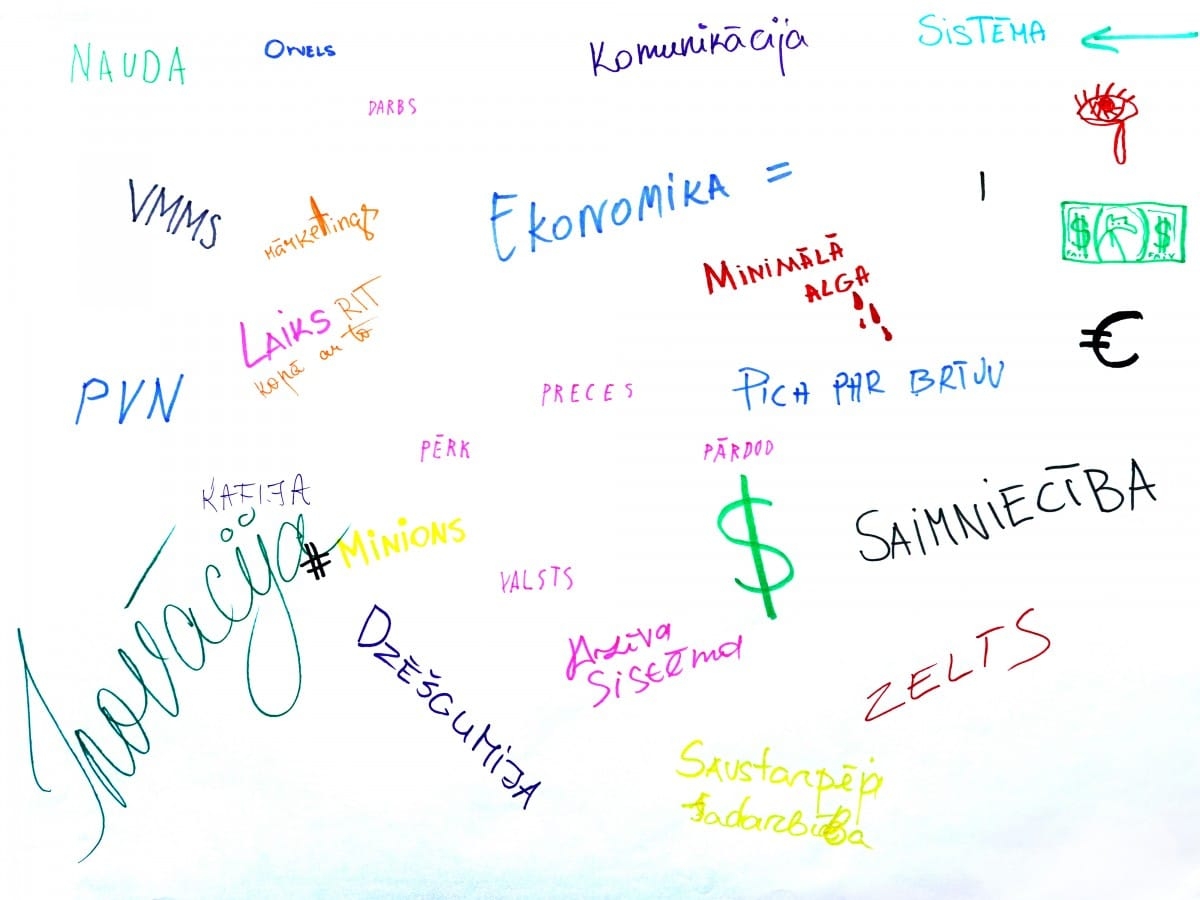 NAUDA
ORVELS
Komunikācija
SISTĒMA
DARBS
VMMS
mārketings
EKONOMIKA =
$ $
MINIMĀLĀ
ALGA
LAIKS RIT
kopā ar to
€
PVN
PRECES
PICA PAR BRĪVU
PĒRK
PĀRDOD
KAFIJA
Inovācija
#MINIONS
$
SAIMNIECĪBA
VALSTS
DZĒŠGUMIJA
sistēma
ZELTS
Savstarpēja
sadarbība